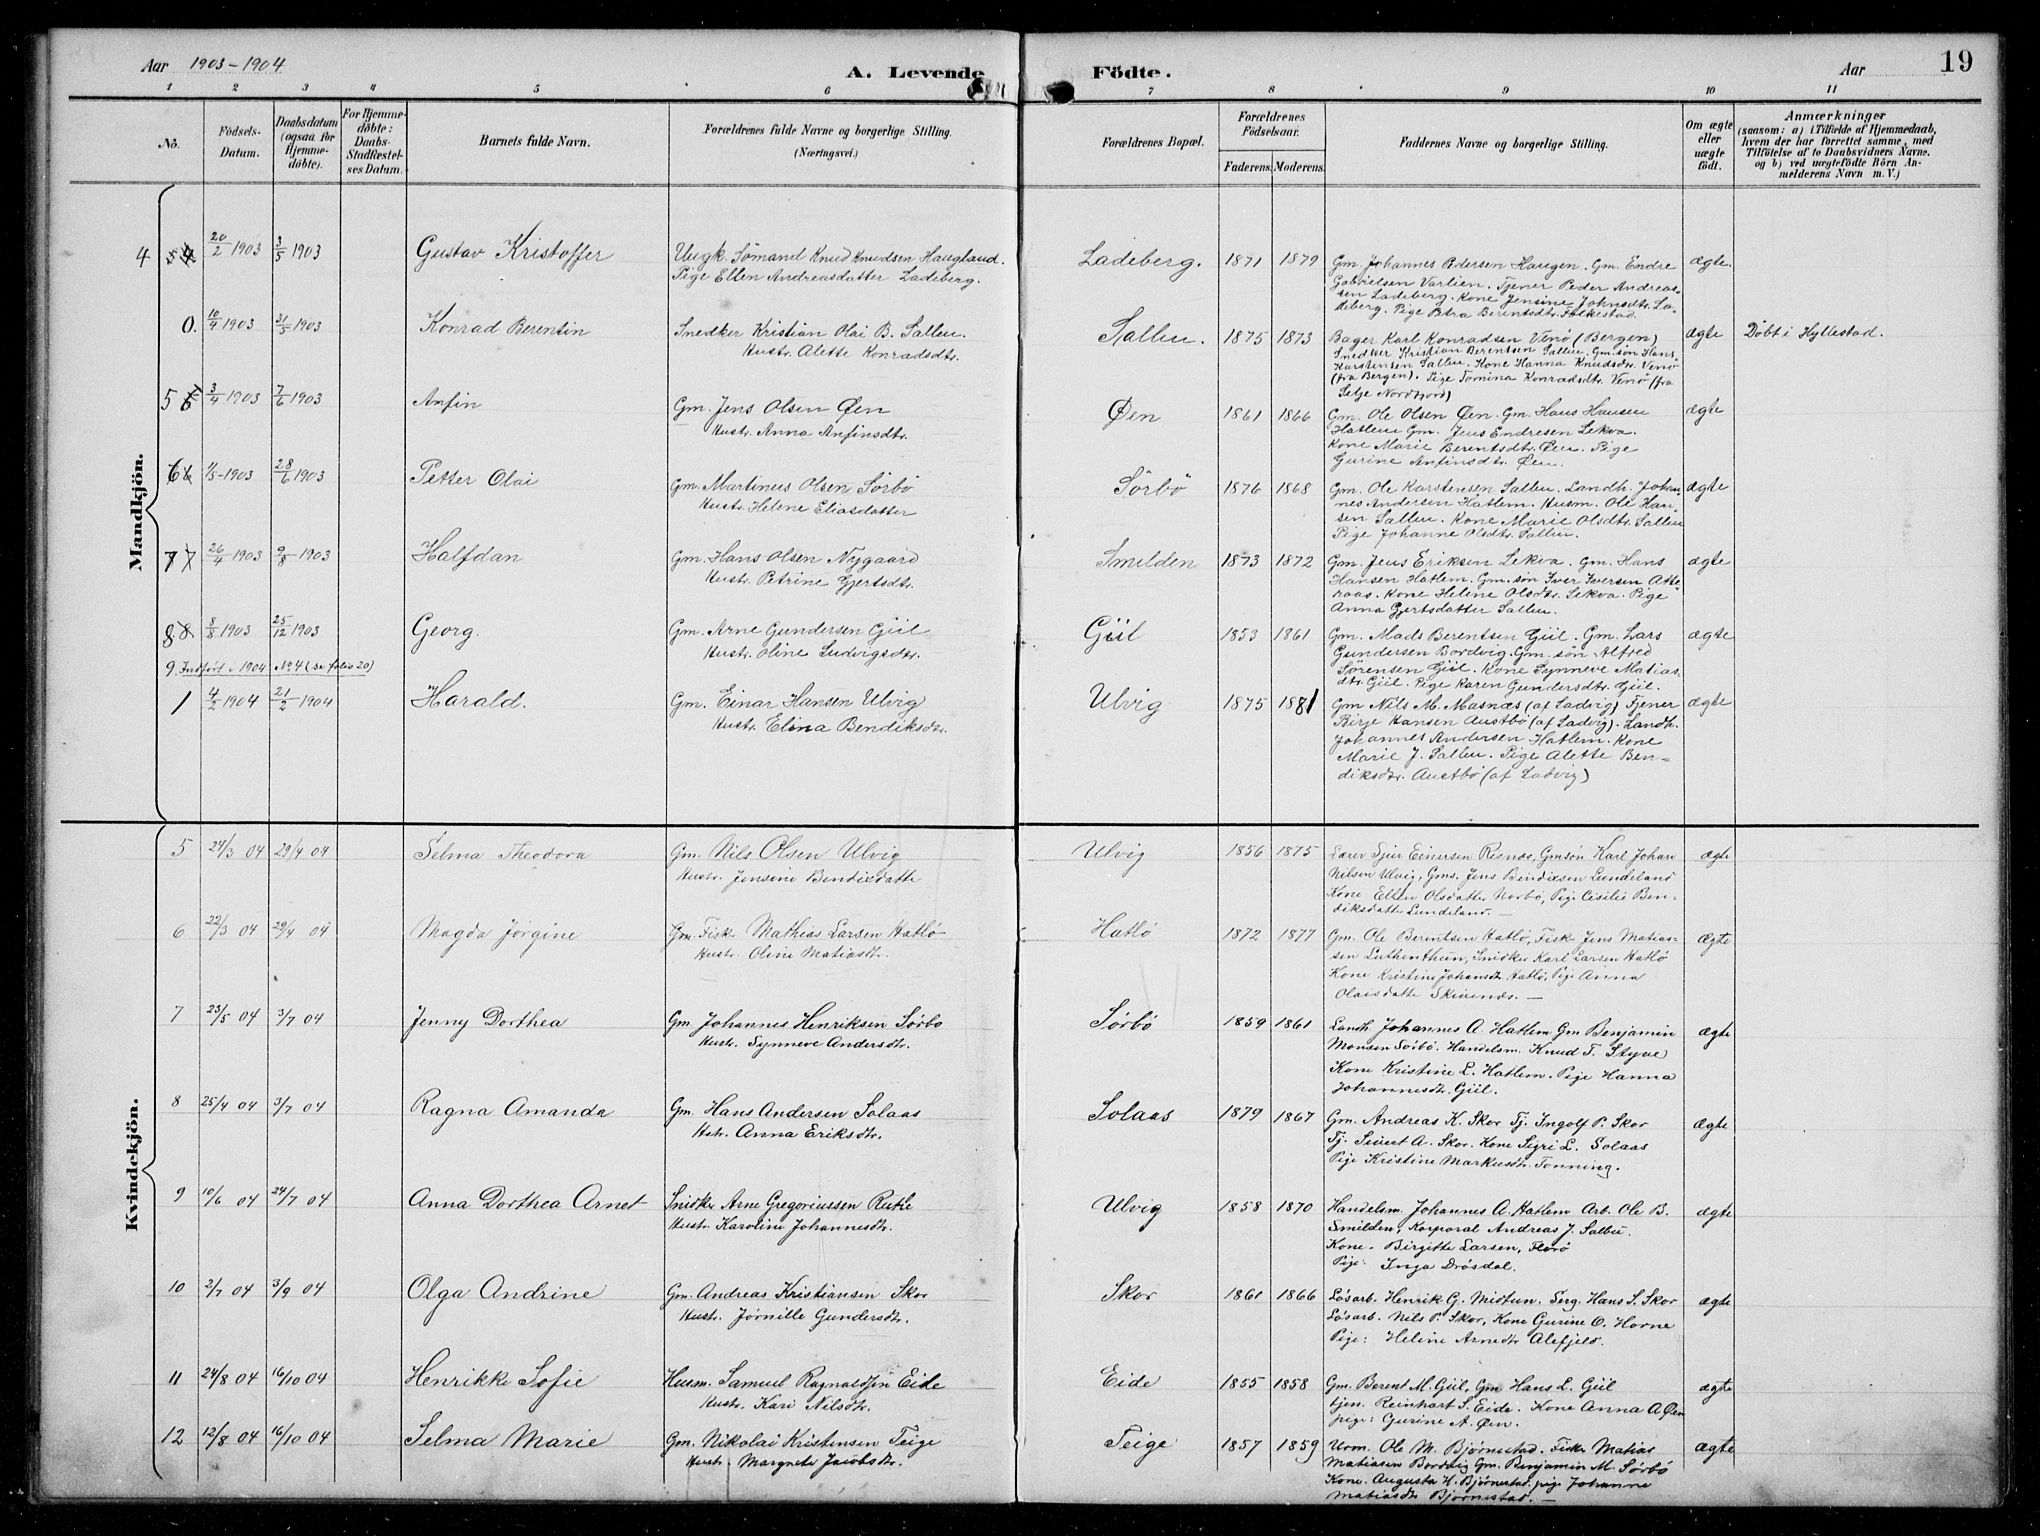 Aar 1903-1904
A. Levende Födte.
Aar
19
1 2 3 4 5 6 7 8 9 10 11
No.
Födsels-Datum.
Daabsdatum (ogsaa for Hjemme-döbte).
For Hjemme-döbte: Daabs-Stadfæstel-ses Datum.
Barnets fulde Navn.
Forældrenes fulde Navne og borgerlige Stilling. (Næringsvei.)
Forældrenes Bopæl.
Forældrenes Födselsaar.
Faderens. Moderens.
Faddernes Navne og borgerlige Stilling.
Om ægte eller uægte födt.
Anmærkninger
(saasom: a) i Tilfælde af Hjemmedaab, hvem der har forrettet samme, med Tilföielse af to Daabsvidners Navne. og b) ved uægtefödte Börn An-melderens Navn m. V.)
Mandkjön.
4 20/2 1903 3/5 1903 Gustav Kristoffer Ungk. Sömand Knud Knudsen Haugland. Ladeberg. 1871 1879 Gm. Johannes Pedersen Haugen. Gm. Endre ægte.
Pige Ellen Andreasdatter Ladeberg. Gabrielsen Varlien. Tjener Peder Andreas-
sen Ladeberg. Kone Jensine Johnsdtr. La-
deberg. Pige Petra Berentsdtr. Folkestad.
0. 10/4 1903 31/5 1903 Konrad Berentin Snedker Kristian Olai B. Sallen. Sallen. 1875 1873 Bager Karl Konradsen Venö (Bergen) ægte Döbt i Hyllestad.
Hustr. Alette Konradsdtr. Snedker Kristian Berentsen Sallen. Gm.sön Hans
Karstensen Sallen. Kone Hanna Knudsdtr. Venö
(fra Bergen). Pige Tomina Konradsdtr. Venö (fra
Selje Nordfjord)
5 3/4 1903 7/6 1903 Anfin Gm. Jens Olsen Øen Øen 1861 1866 Gm. Ole Olsen Øen. Gm. Hans Hansen ægte
Hustr. Anna Anfinsdtr. Hatlem Gm. Jens Endresen Lekva.
Kone Marie Berentsdtr. Øen. Pige
Gurine Anfinsdtr. Øen.
6 1/5 1903 28/6 1903 Petter Olai Gm. Martinus Olsen Sørbö Sörbö 1876 1868 Gm. Ole Karstensen Sallen. Landh. Johan- ægte
Hustr. Helene Eliasdatter nes Andersen Hatlem. Husm. Ole Han-
sen Sallen. Kone Marie Olsdtr. Sallen
Pige Johanne Olsdtr. Sallen.
7 26/4 1903 9/8 1903 Halfdan Gm. Hans Olsen Nygaard Smilden 1873 1872 Gm. Jens Eriksen Lekva. Gm. Hans ægte
Hustr. Petrine Gjertsdtr. Hansen Hatlem. Gm. sön Iver Iversen Atte-
raas. Kone Helene Olsdtr. Lekva. Pige
Anna Gjertsdatter Sallen.
8 8/8 1903 25/12 1903 Georg. Gm. Arne Gundersen Giil Giil 1853 1861 Gm. Mads Berentsen Giil. Gm. Lars ægte
Hustr. Oline Ludvigsdtr. Gundersen Bordvig. Gm. sön Alfred
Sörensen Giil. Kone Synneve Matias-
dtr. Giil. Pige Karen Gundersdtr. Giil.
9. Indført i 1904 No 4 (se folio 20)
1 4/2 1904 21/2 1904 Harald. Gm. Einar Hansen Ulvig Ulvig 1875 1881 Gm Nils M. Masnæs (af Ladvig) Tjener ægte
Hustr. Elina Bendiksdtr. Birje Hansen Austbö (af Ladvig). Landh.
Johannes Andersen Hatlem. Kone
Marie J. Sallen. Pige Alette Ben-
diksdtr. Austbö (af Ladvig)
Kvindekjön.
5 24/3 04 29/4 04 Selma Theodora Gm. Nils Olsen Ulvig Ulvig 1856 1875 Lærer Sjur Einersen Risnæs, Gmsön Karl Johan ægte
Hustr. Jensine Bendixdatte Nilsen Ulvig, Gms. Jens Bendixen Lundeland
Kone Ellen Olsdatter Norbö, Pige Cisilie Ben-
diksdatte Lundeland.
6 22/3 04 29/4 04 Magda Jörgine Gm. Fisk. Mathias Larsen Hatlö Hatlö 1872 1877 Gm. Ole Berentsen Hatlö, Fisk Jens Matias- Ægte
Hustr. Oline Matiasdtr. sen Luthenthun, Snidker Karl Larsen Hatlö
Kone Kristine Johansdtr Hatlö, Pige Anna
Olaisdatte Skivenes.
7 23/5 04 3/7 04 Jenny Dorthea Gm Johannes Henriksen Sørbø Sørbø 1859 1861 Landh. Johannes A. Hatlem Gm Benjamin ægte
Hustr. Synneve Andersdtr. Monsen Sörbö. Handelsm. Knud T. Styve
Kone Kristine L. Hatlem. Pige Hanna
Johannesdtr Giil.
8 25/4 04 3/7 04 Ragna Amanda Gm. Hans Andersen Solaas Solaas 1879 1867 Gm. Andreas K. Skor Tj. Ingolf P. Skor ægte
Hstr. Anna Eriksdtr. Tj. Sivert A. Skor. Kone Sigri L. Solaas
Pige Kristine Markusdtr. Tonning.
9 10/6 04 24/7 04 Anna Dorthea Arnet Snidke Arne Gregoriussen Rutle Ulvig 1858 1870 Handelsm. Johannes A. Hatlem Arb. Ole B. ægte
Hustr. Karoline Johannesdtr. Smilden, Korporal Andreas J. Salbu.
Kone. Birgitte Larsen, Florö
Pige: Inga Drösdal.
10 2/7 04 3/9 04 Olga Andrine Gm. Andreas Kristiansen Skor Skor 1861 1866 Løsarb. Henrik G. Midtun. Serg. Hans S. Skor ægte
Hustr. Jørnille Gundersdtr. Løsarb. Nils P. Skor, Kone Gurine O. Horne
Pige: Heline Arnedtr Alefjeld.
11 24/8 04 16/10 04 Henrikke Sofie Husm. Samuel Ragnaldsen Eide Eide 1855 1858 Gm. Berent M. Giil, Gm Hans L. Giil ægte
Hustr. Kari Nilsdtr. tjen. Reinhart S. Eide. Kone Anna A Øen
pige: Gurine A. Øen.
12 12/8 04 16/10 04 Selma Marie Gm. Nikolai Kristensen Teige Teige 1857 1859 Urm. Ole M. Bjørnestad. Fisk Matias ægte
Hustr. Margrete Jacobsdtr. Matiasen Bordvig Gm. Benjamin M. Sørbö
Kone. Augusta H. Bjørnestad. pige Johanne
Matiasdtr Bjørnestad.